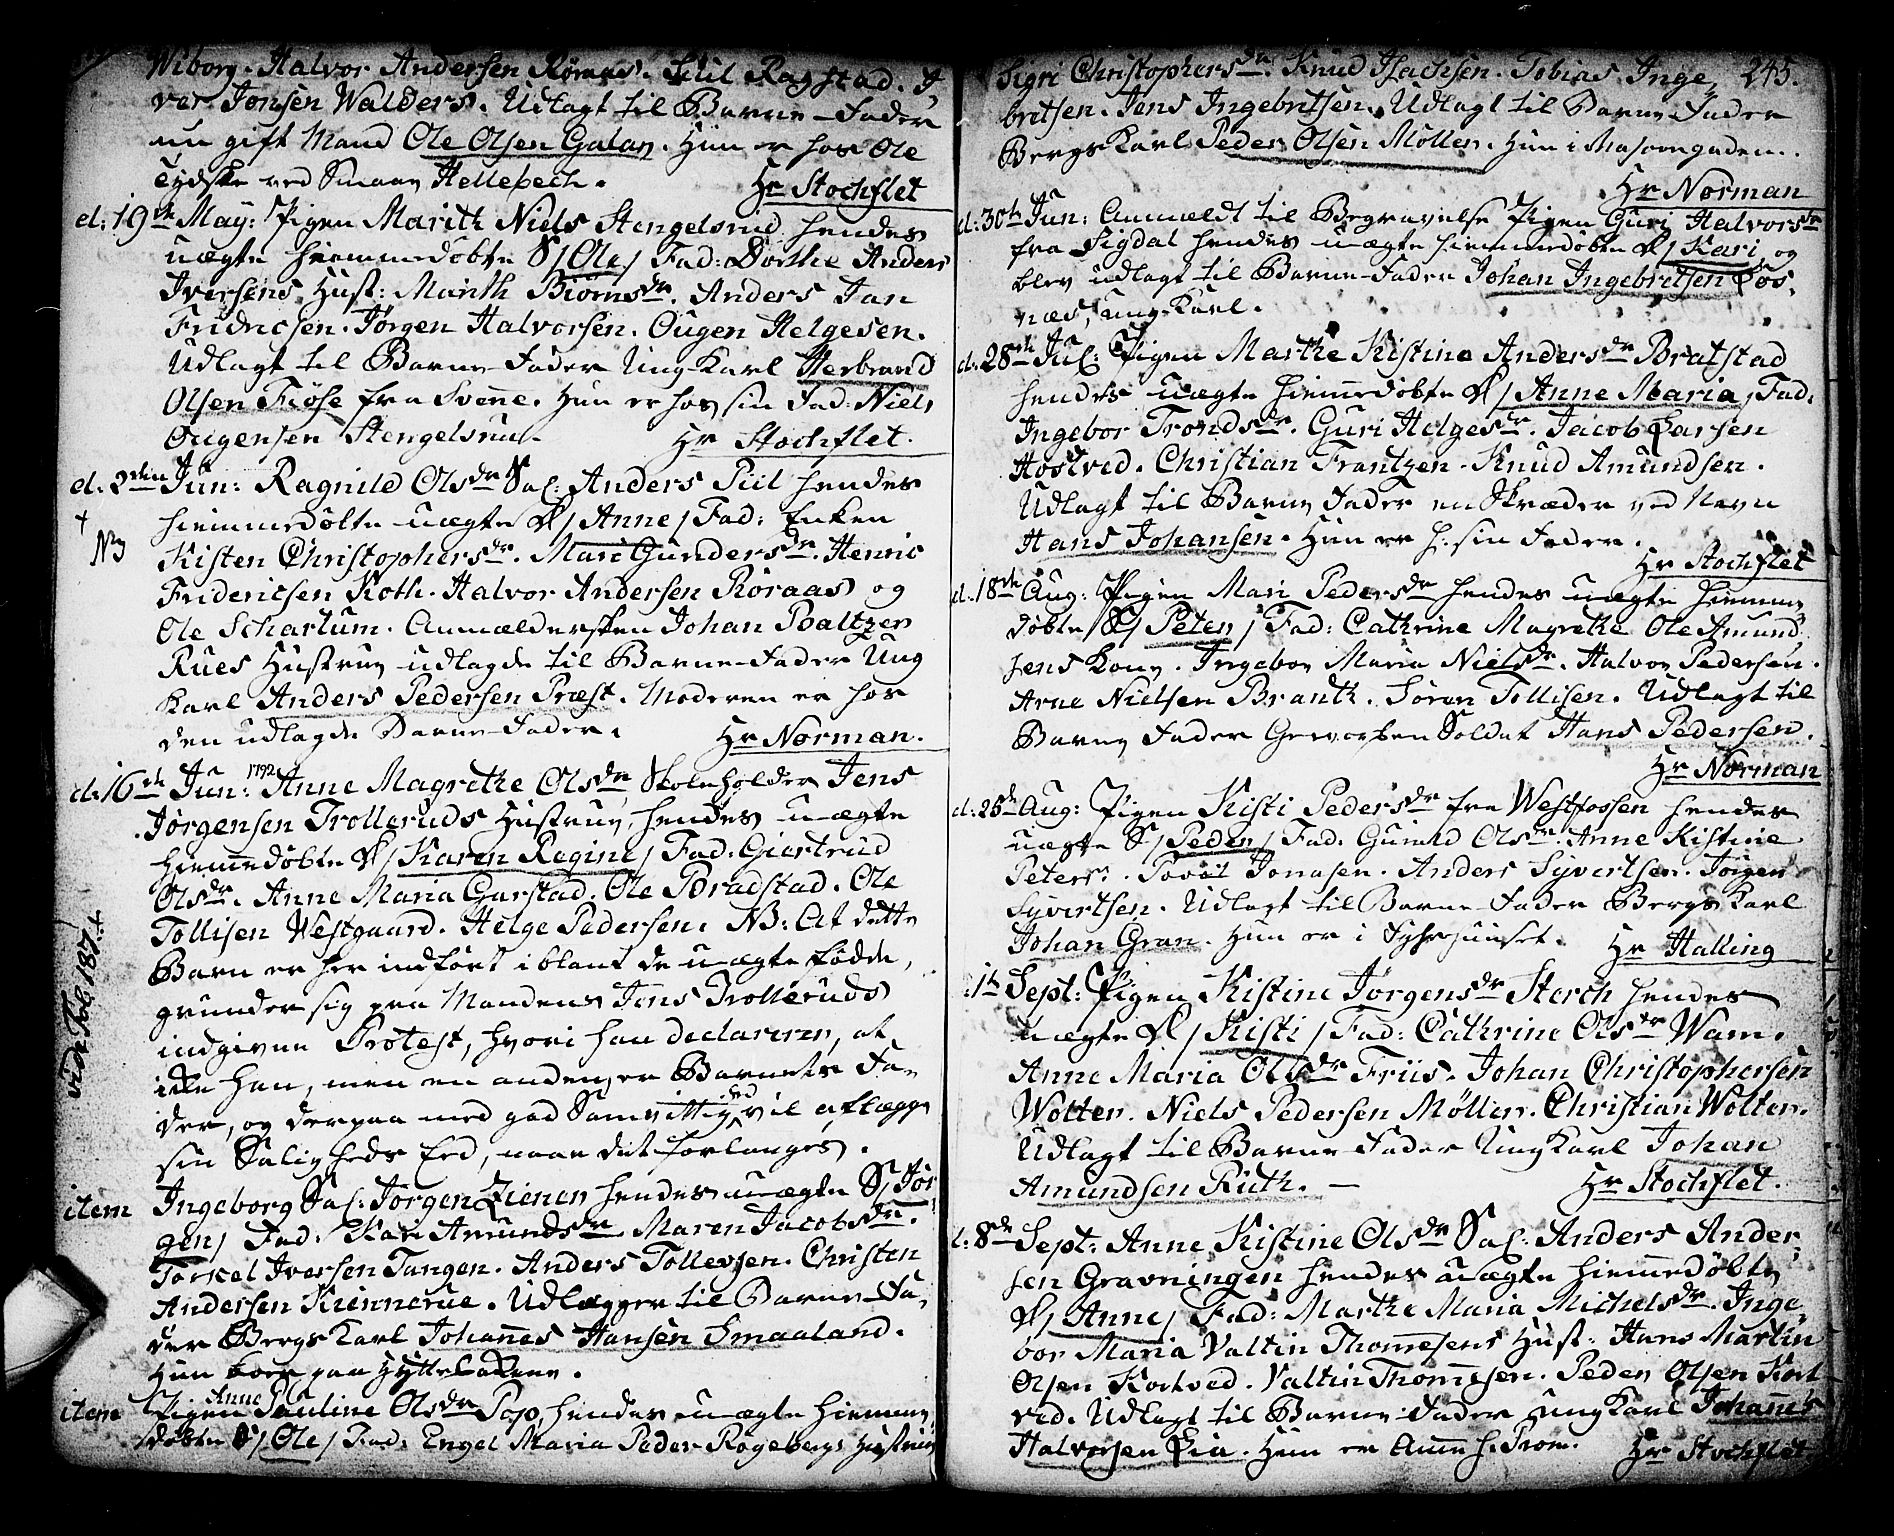 Wiborg. Halvor Andersen Røraas. Kiil Ragstad. J
var Jonsen Walders. Udlagt til Barne-Fader
en gift Mand Ole Olsen Galaa. Hun er hos Ole
Tydske ved Smaae Hellebech.
Hr Stochflet
d: 19de May: Pigen Marith Niels Stengelsrud hendes
uægte hiemmedøbte S/ Ole/ Fad: Dorthe Anders
Iversens Hust: Marith Biørnsdr. Anders Jan
Fridrichsen. Jørgen Halvorsen. Ougen Helgesen.
Udlagt til Barne-Fader Ung Karl Herbrand
Olsen Fiøse fra Svenne. Hun er hos sin Fad: Niels
Ougensen Stengelsrud.
Hr Stochflet.
d. 2den Jun: Ragnild Olsdr Sal: Anders Piil hendes
hiemmedøbte uægte D/ Anne/ Fad: Enken
Kisten Christophersdr. Mari Gundersdr. Henric
Fridericsen Koth. Halvor Andersen Røraas og
Ole Schartum. Anmældersken Johan Baltzer
Rues Hustrue udlagde til Barne-Fader Ung
Karl Anders Pedersen Præst. Moderen er hos
den udlagde Barne-Fader.
Hr Norman.
d: 16de Jun: 1792 Anne Magrethe Olsdr Skoleholder Jens
Jørgensen Trolleruds Hustrue, hendes uægte
hiemmedøbte D/ Karen Regine/ Fad: Giertrud
Olsdr. Anne Maria Garstad. Ole Bradstad. Ole
Tollisen Westgaard. Helge Pedersen. NB: At dette
Barn er her indført iblant de uægte fødde,
grunder sig paa Mandens Jens Trolleruds
indgivne Protest, hvori han declarerer, at
ikke han, men en anden, er Barnets Fa-
der, og derpaa med god Samvittighed vil aflægge
sin Saligheds Eed, naar det forlanges.
vide Fol 187
item Ingeborg Sal: Jørgen Zienen hendes uægte S/ Jør
gen/ Fad: Kari Amundsdr. Maren Jacobsdr.
Torkel Iversen Tangen. Anders Tollevsen. Christen
Andersen Kiennerue. Udlægger til Barne-Fa-
der Bergs Karl Johannes Hansen Smaaland.
Hun boer paa Hyttebakken.
item Pigen Anne Pauline Olsdr Pop, hendes uægte hiemme
døbte S/ Ole/ Fad: Engel Maria Peder Rogebergs Hustrue
245.
Sigri Christophersdr. Knud Isachsen. Tobias Inge
bretsen. Jens Ingebritsen. Udlagt til Barne-Fader
Bergs Karl Peder Olsen Møller. Hun i Masovngaden.
Hr Norman
d: 30te Jun: Anmældt til Begravelse Pigen Guri Halvorsdr
fra Sigdal hendes uægte hiemmedøbte D/ Kari, og
blev udlagt til Barne-Fader Johan Ingebretsen Fos
næs, ung Karl.
d. 28de Jul: Pigen Marthe Kistine Andersdr Bratstad
hendes uægte hiemmedøbte D/ Anne Maria/ Fad:
Ingebor Trondsdr. Guri Helgesdr. Jacob Larsen
Hostved. Christian Frantzen. Knud Amundsen.
Udlagt til Barne Fader en Skræder ved Navn
Hans Johansen. Hun er h: sin Fader.
Hr Stochflet
d. 18de Aug: Pigen Mari Pedersdr hendes uægte hiemme
døbte S/ Peter/ Fad: Cathrine Magrethe Ole Amund
sens Kone. Ingebor Maria Nielsdr. Halvor Pedersen.
Arne Nielsen Branth. Søren Tollisen. Udlagt til
Barne Fader Geworben Soldat Hans Pedersen.
Hr Norman
d: 25de Aug: Pigen Kisti Pedersdr fra Westfossen hendes
uægte S/ Peder/ Fad: Gunild Olsdr. Anne Kistine
Peters. Povel Jonasen. Anders Syvertsen. Jørgen
Syvertsen. Udlagt til Barne-Fader Bergs Karl
Johan Gran. Hun er i Syhehuuset.
Hr Halling
1te Sept: Pigen Kistine Jørgensdr Sterch hendes
uægte D/ Kisti/ Fad: Cathrine Olsdr Wam.
Anne Maria Olsdr Friis. Johan Christophersen
Wolter. Niels Pedersen Møller. Christian Wolter.
Udlagt til Barne-Fader Ung Karl Johan
Amundsen Ruth.
Hr Stochflet.
d: 8de Sept: Anne Kistine Olsdr Sal: Anders Ander
sen Gravningen hendes uægte hiemmedøbte
D/ Anne/ Fad: Marthe Maria Michelsdr. Inge
bor Maria Valtin Thomesens Hust: Hans Martin
Olsen Kortved. Valtin Thomesen. Peder Olsen Kort
ved. Udlagt til Barne-Fader ung Karl Johannes
Halvorsen Lia. Hun er Amme h: From.
Hr Stochflet